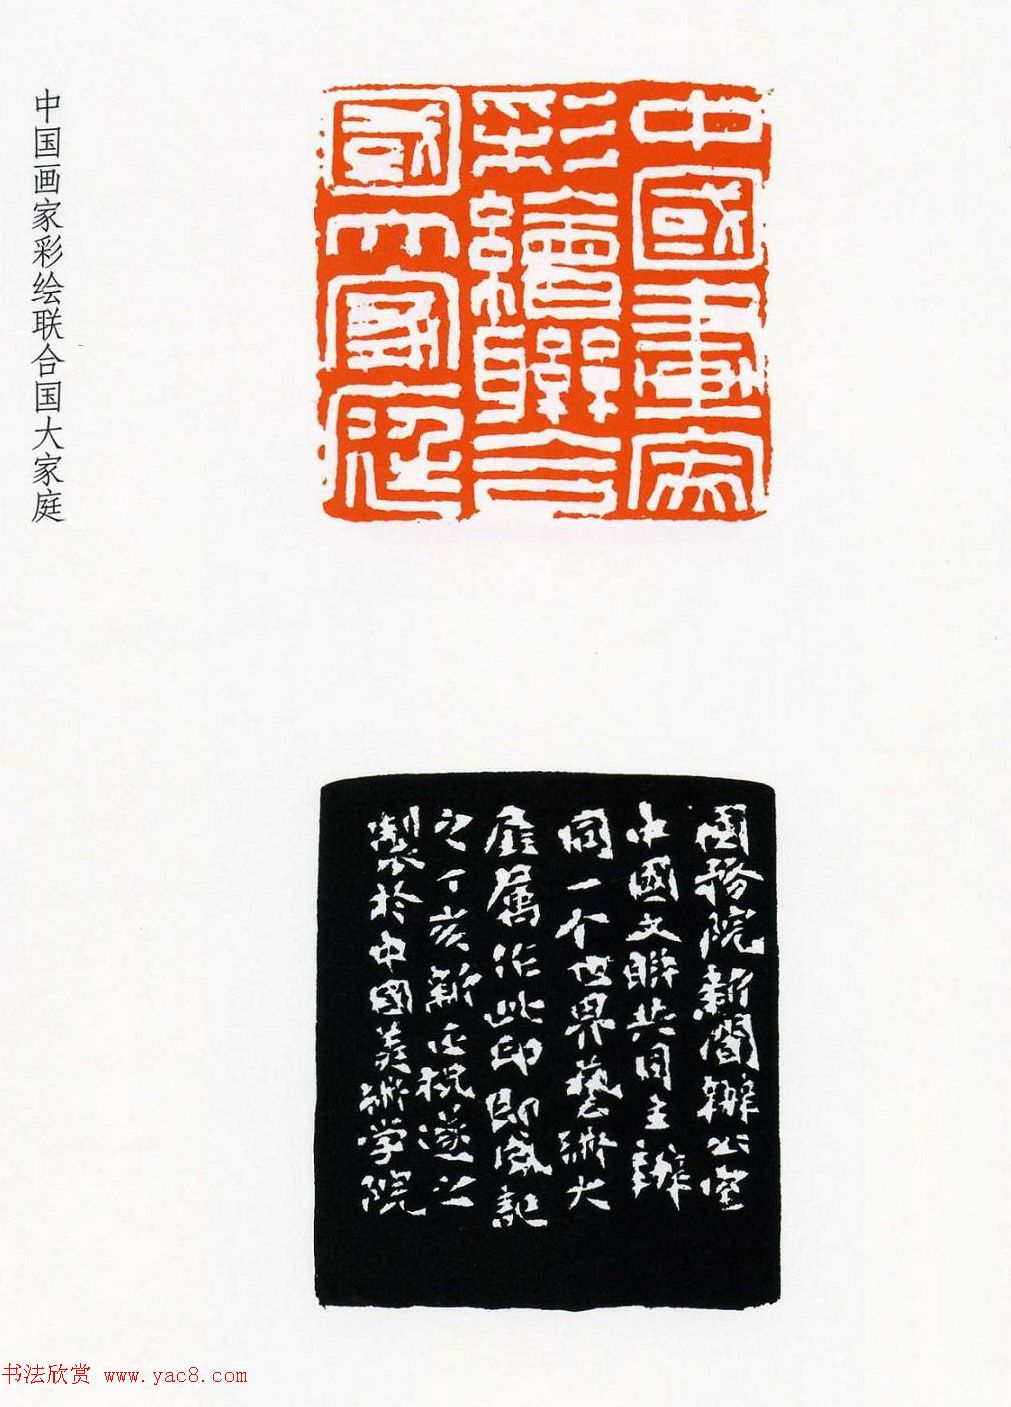 中国画家彩绘联合国大家庭
中國畫家
彩繪聯合
國大家庭
國務院新聞辦公室
中國文聯共同主辦
同一个世界藝術大
展屬作此印即成記
之丁亥新正祝遂之
製於中國美術学院
书法欣赏 www.yac8.com